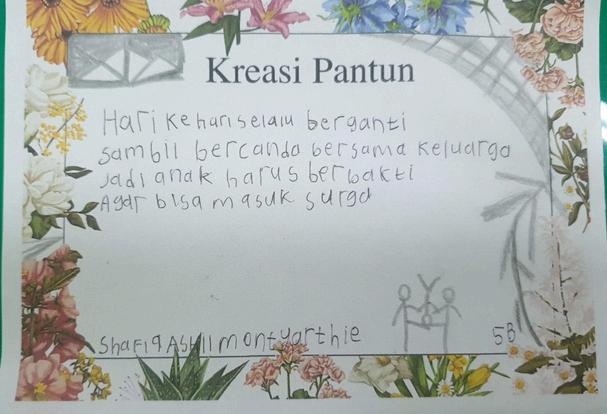 Kreasi Pantun
Hari ke hari selalu berganti
sambil bercanda bersama keluarga
jadi anak harus berbakti
Agar bisa masuk surga
Shafiq 5B